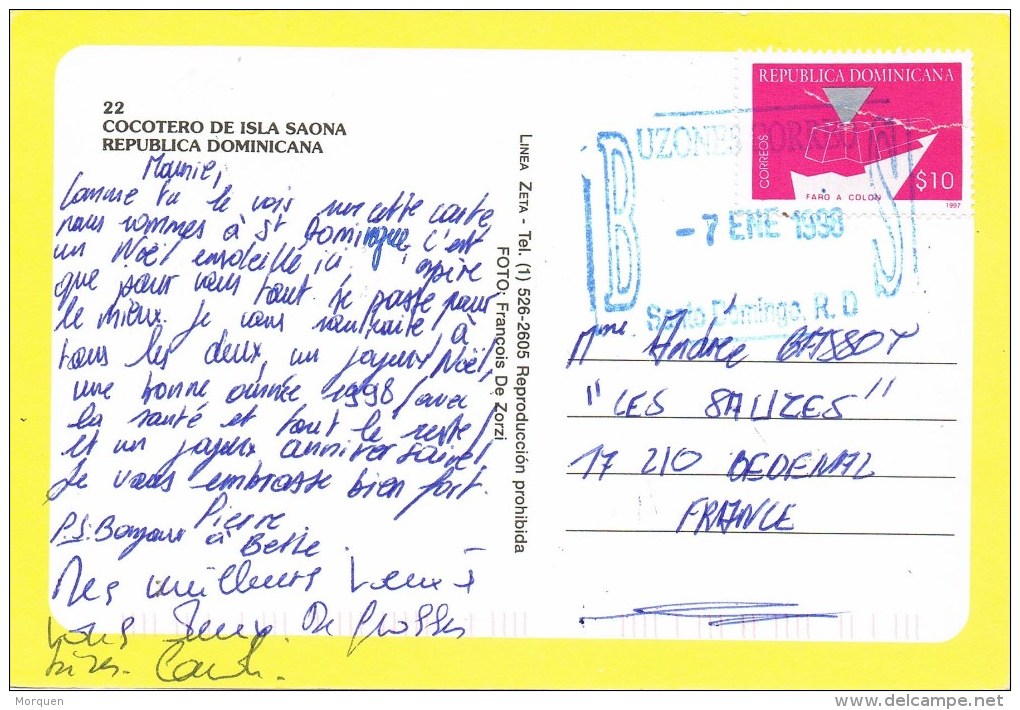 22
COCOTERO DE ISLA SAONA
REPUBLICA DOMINICANA
Mamie,
Comme tu le vois sur cette carte
nous sommes à St Domingue, C'est
un Noël ensoleillé ici. espère
que pour vous tout se passe pour
le mieux. Je vous souhaite à
tous les deux, un joyeux Noël,
une bonne année 1998 (avec
la santé et tout le reste)
et un joyeux anniversaire!
Je vous embrasse bien fort.
Pierre
P.S: Bonjour à
Mes meilleurs voeux à
vous deux. De grosses
bises.
LINEA ZETA - Tel. (1) 526-2605 Reproducción prohibida
FOTO: François De Zorzi
REPUBLICA DOMINICANA
CORREOS
$10
FARO A COLON
1997
BUZONES EXPRESOS
-7 ENE 1998
Santo Domingo, R. D
Mme Andrée
"LES"
17 210
FRANCE
Morquen
delcampe.net